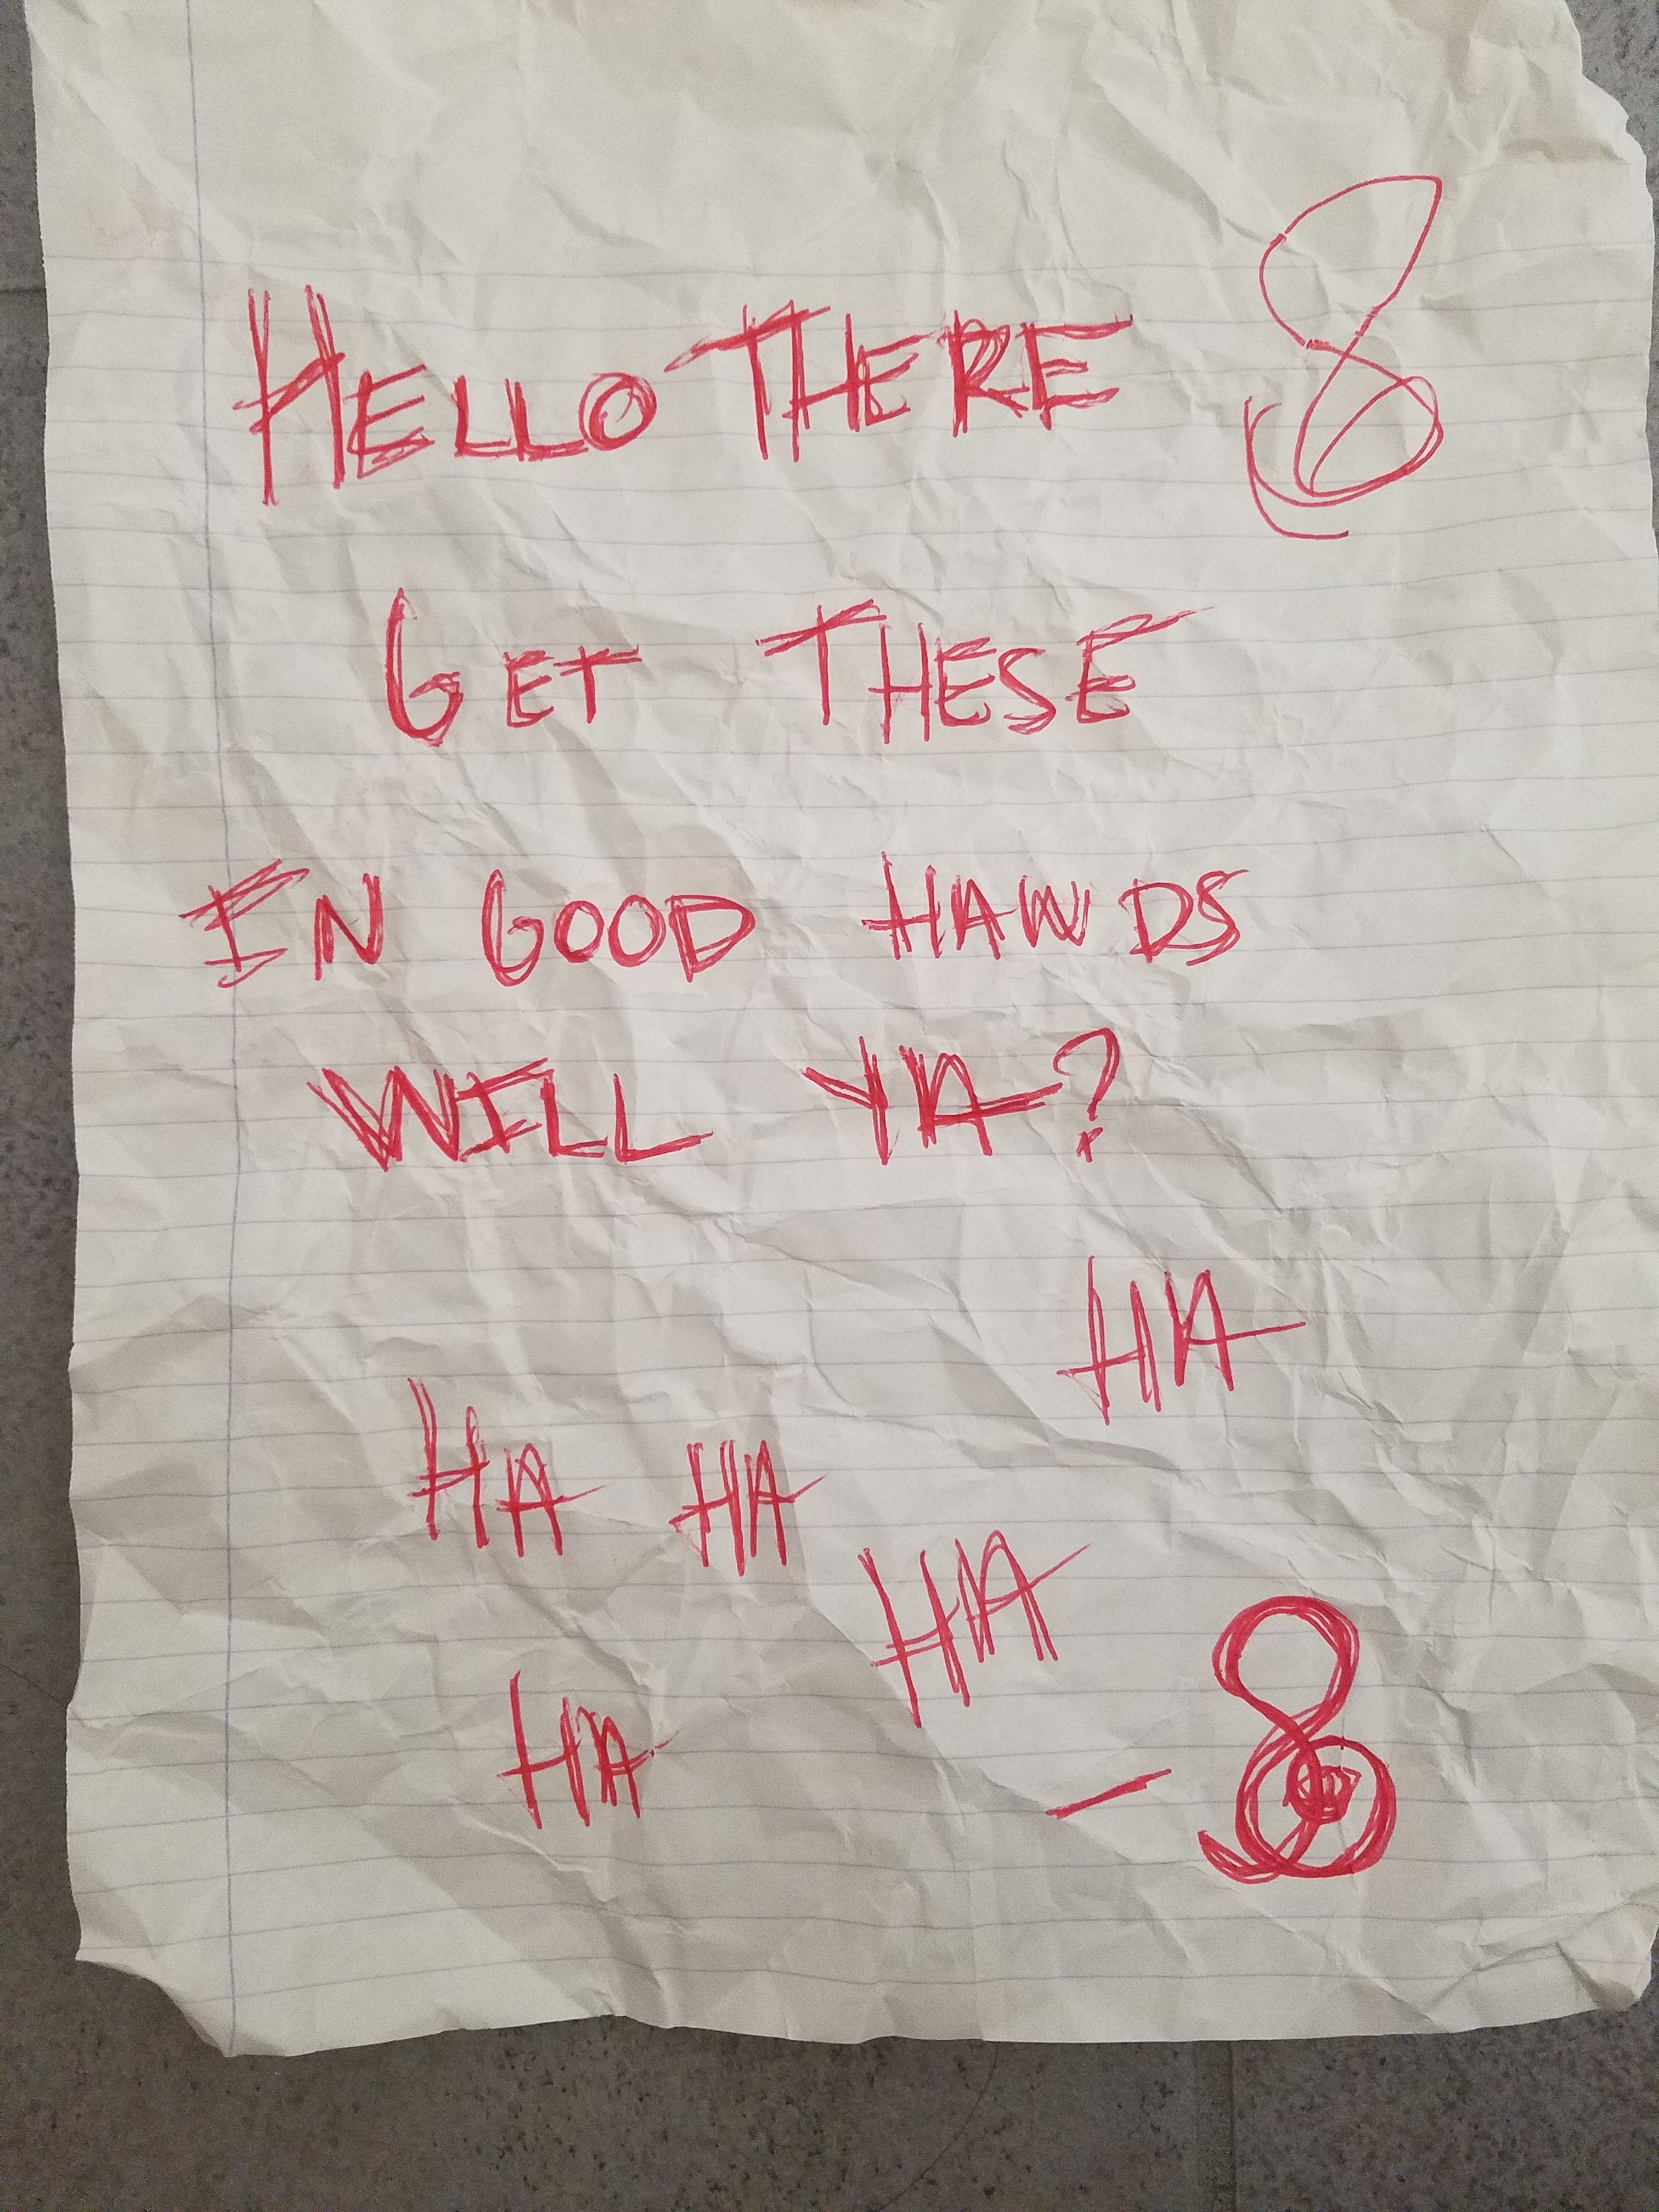 HELLO THERE 8
GET THESE
IN GOOD HANDS
WILL YA?
HA
HA HA
HA
HA
- 8